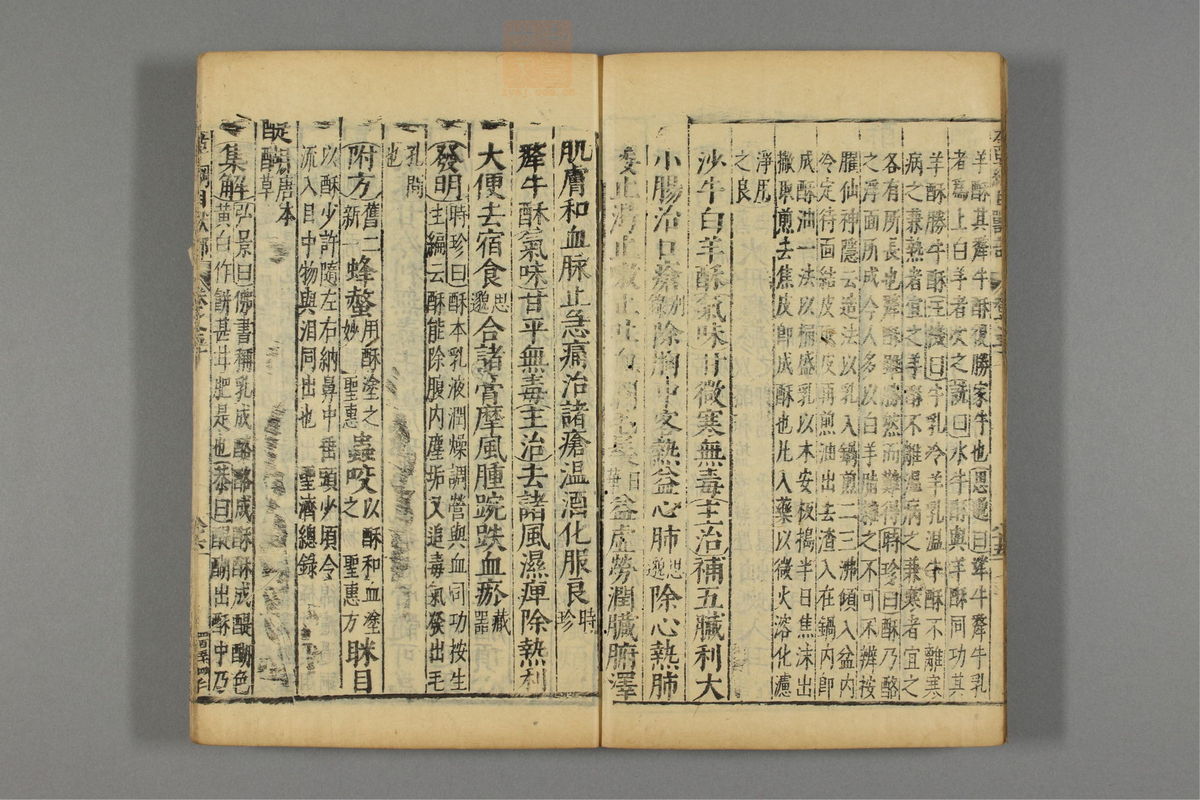 羊酥其犛牛酥復勝家牛也思邈曰犛牛犛牛乳
者為上白羊者次之詵曰水牛酥與羊酥同功其
羊酥勝牛酥主機曰牛乳冷羊乳溫牛酥不離寒
病之兼熱者宜之羊酥不離溫病之兼寒者宜之
各有所長也犛酥雖勝然而難得時珍曰酥乃酪
之浮面所成今人多以白羊脂雜之不可不辨按
臞仙神隱云造法以乳入鍋煎二三沸傾入盆內
冷定待面結皮取皮再煎油出去渣入在鍋內即
成酥油一法以桶盛乳以木安板搗半日焦沫出
撇取煎去焦皮即成酥也凡入藥以微火溶化濾
淨用
之良
沙牛白羊酥氣味甘微寒無毒主治補五臟利大
小腸治口瘡別錄除胸中客熱益心肺思邈除心熱肺
止渴止 止吐 日華益虛勞潤臟腑澤
肌膚和血脉止急痛治諸瘡溫酒化服良時珍
犛牛酥氣味甘平無毒主治去諸風濕痺除熱利
大便去宿食思邈合諸膏摩風腫踠跌血瘀藏器
發明時珍曰酥本乳液潤燥調營與血同功按生
生編云酥能除腹內塵垢又追毒氣發出毛
孔間
也
附方舊二新一蜂螫用酥塗之妙聖惠蟲咬以酥和血塗之聖惠方眯目
以酥少許隨左右納鼻中垂頭少頃令
流入目中物與淚同出也 聖濟總錄
醍醐唐本草
集解弘景曰佛書稱乳成酪酪成酥酥成醍醐色
黃白作餅甚甘肥是也恭曰醍醐出酥中乃